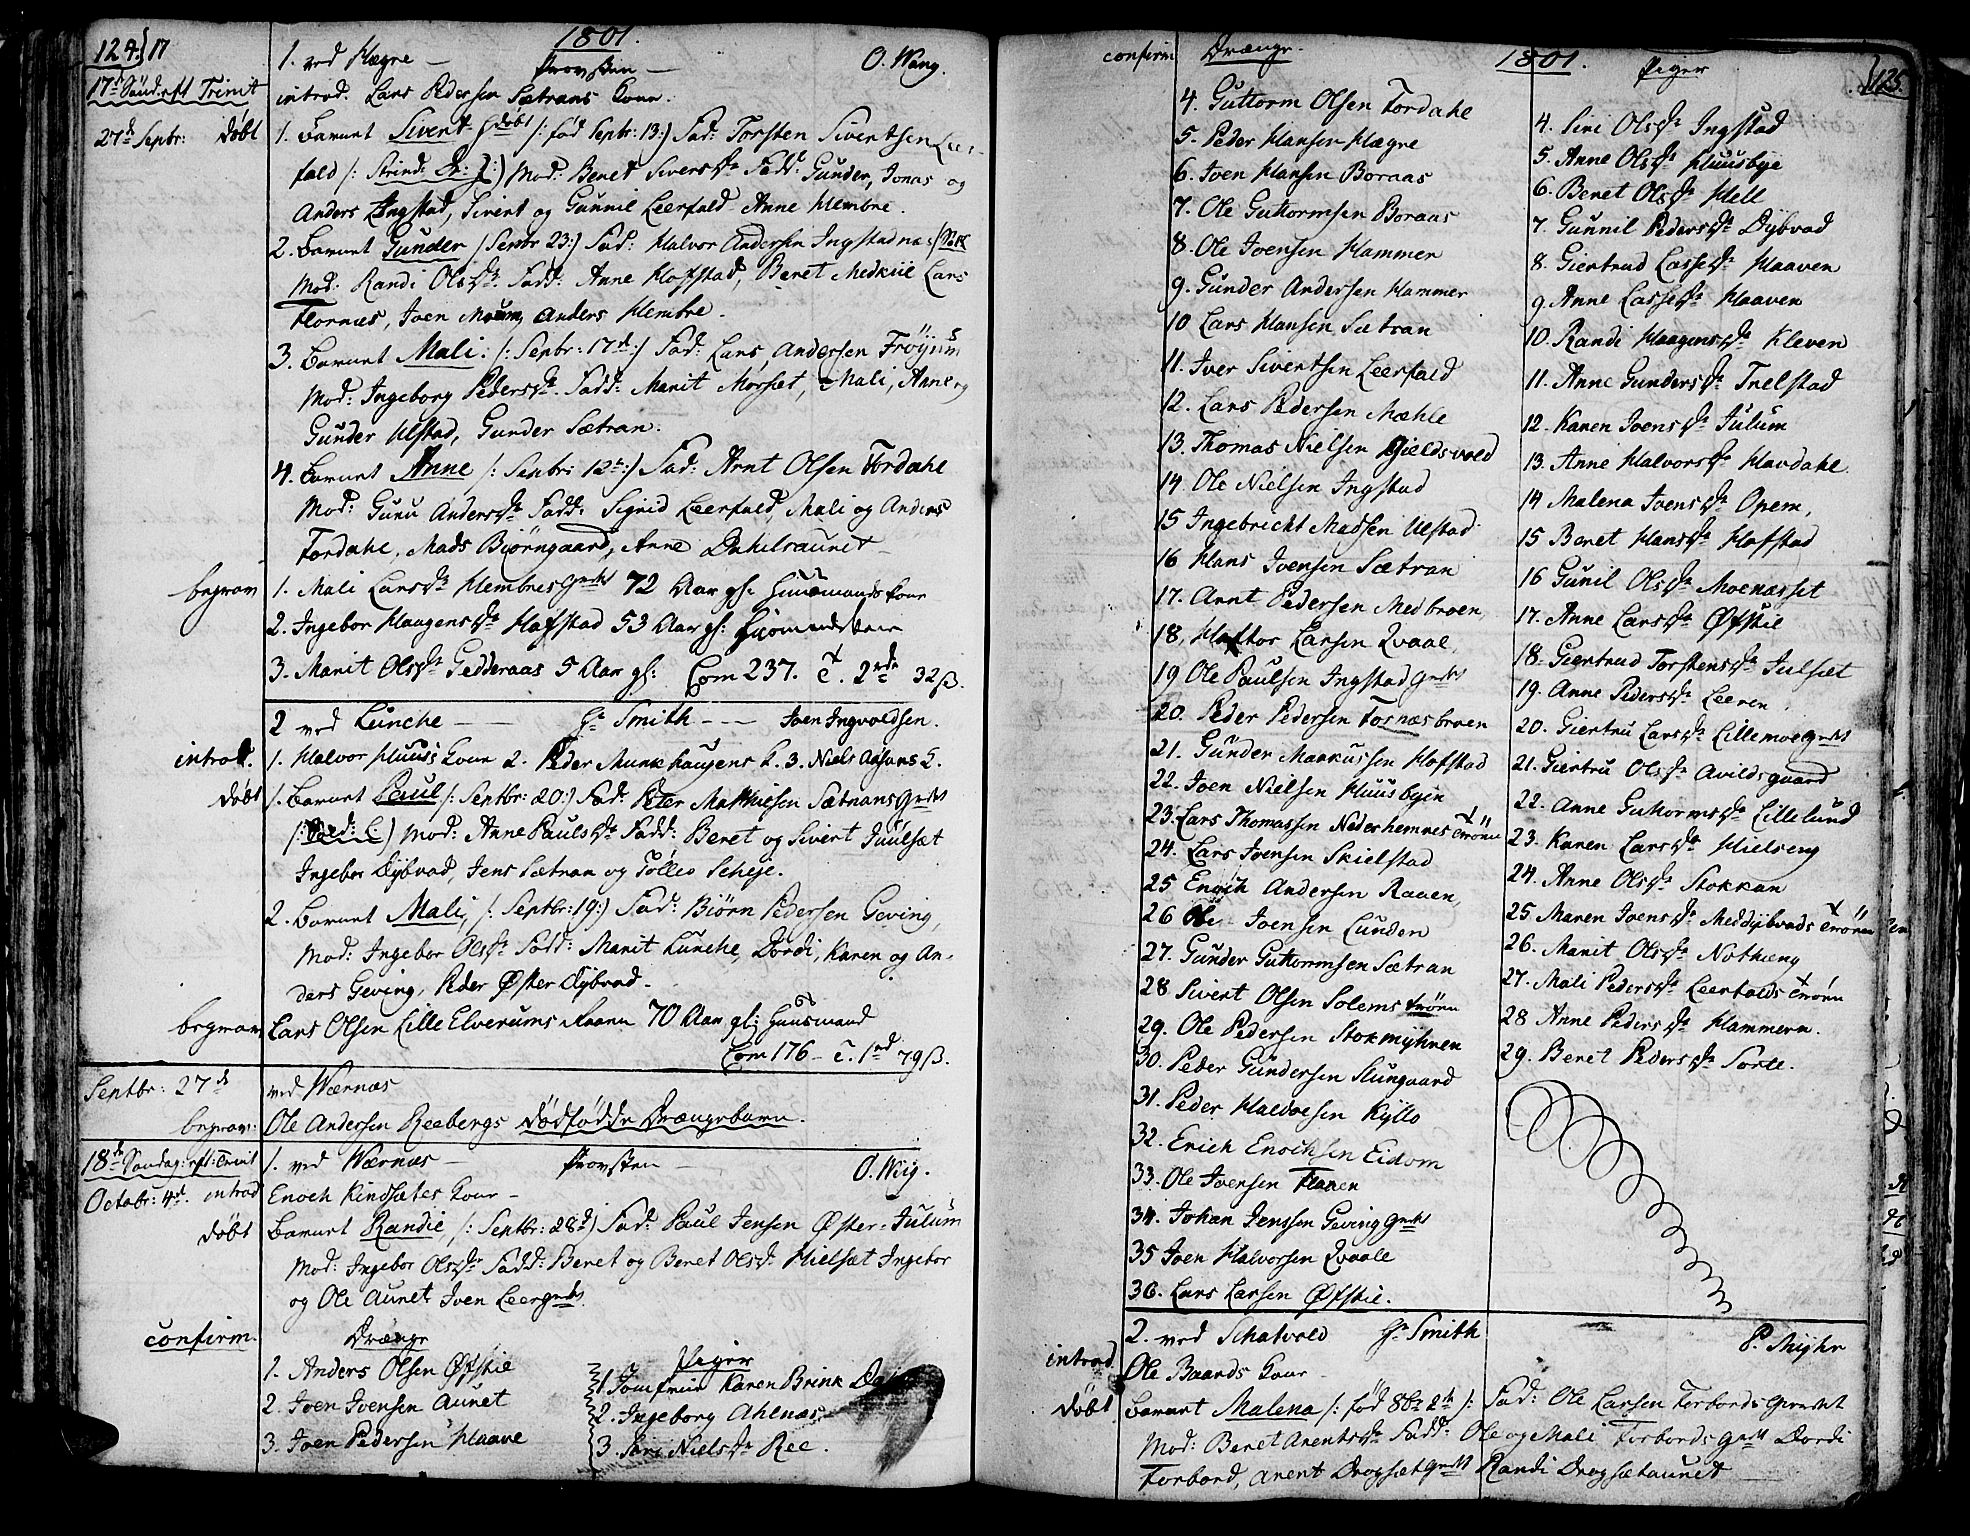 124. 17
1801.
1. ved Hegre — Provsten — O. Wang.
17d Sönd. eft Trinit
introd. Lars Pedersen Sætrans Kone.
27d Septbr: Döbt
1. Barnet Sivert Hdöbt /: föd Septbr: 13:/ Fad: Torsten Sivertsen Leer-
fald /: Strind: / Mod: Beret Sivers Dr Fadd: Gunder, Jonas og
Anders Ingstad, Sivert og Gunnil Leerfald Anne Hembre.
2. Barnet Gunder /: Septbr 23:/ Fad: Halvor Andersen Ingstadnæs
Mod: Randi Ols Dr. Fadd: Anne Hofstad, Beret Medkiil Lars
Flornæs, Joen Moum, Anders Hembre.
3. Barnet Mali: /: Septbr: 17d:/ Fad: Lars Andersen Fröijnes
Mod: Ingeborg Peders Dr. Fadd: Marit Morset, Mali, Anne og
Gunder Ulstad, Gunder Sætran.
4. Barnet Anne /: Septbr: 12t:/ Fad: Arnt Olsen Fordahl
Mod: Guru Anders Dr Fadd: Sigrid Leerfald, Mali og Anders
Fordahl, Mads Biörngaard, Anne Dahlsaunet
begrav
1. Mali Lars Dr Hembres 72 Aar gl: Huusmands Kone
2. Ingebor Haagens Dr Hofstad 53 Aar gl:
3. Marit Ols Dr Gedderaas 5 Aar gl: Com 237. T. 2rd 32 ß.
2 ved Lunche — Hr Smith — Joen Ingvoldsen.
introd. 1. Halvor Huuss Kone 2. Peder Munkhaugens K. 3. Niels Aasans K.
döbt 1. Barnet Paul /: Septbr: 20:/ Fad: Peter Mathiesen Sætrans
Mod: Anne Pauls Dr Fadd: Beret og Sivert Juulset
Ingebor Dybvad, Jens Sætran og Tollev Scheje.
2. Barnet Mali, /: Septbr: 19:/ Fad: Biörn Pedersen Geving,
Mod: Ingebor Ols Dr Fadd: Marit Lunche, Dordi, Karen og An-
ders Geving, Peder Öster Dybvad.
begrav. Lars Olsen Lille Elverums 70 Aar gl: Huusmand
Com 176 — T. 1rd 79 ß.
Septbr: 27d ved Wærnæs
begrav: Ole Andersen Reebergs dödfödde Drængebarn.
18d Söndag eft: Trinit 1. ved Wærnæs — Provsten — O. Wiig.
Octobr: 4d. introd Enoch Kindsetes Kone —
döbt Barnet Randie, /: Septbr: 28d/ Fad: Paul Jensen Öster-Julum
Mod: Ingebor Ols Dr Fadd: Beret og Beret Ols Dr. Hielset Ingebor
og Ole Aunet Joen Leer
confirm.
Drænge
1. Anders Olsen Öfstie
2. Joen Joensen Aunet
3. Joen Pedersen Haave
Piger
1 Jomfrue Karen Brink
2. Ingeborg Ahlnæs
3. Siri Niels Dr Ree.
125.
1801.
confirm Drænge.
4. Guttorm Olsen Fordahl
5. Peder Hansen Hægre
6. Joen Hansen Boraas
7. Ole Guttormsen Boraas
8. Ole Joensen Hammer
9. Gunder Andersen Hammer
10 Lars Hansen Sætran
11. Iver Sivertsen Leerfald
12. Lars Pedersen Mæhle
13. Thomas Nielsen Gieldsvold
14. Ole Nielsen Ingstad
15 Ingebricht Madsen Ulstad
16 Hans Joensen Sætran
17. Arnt Pedersen Medbroen,
18. Haftor Larsen Qvaal,
19 Ole Paulsen Ingstad
20. Peder Pedersen Fornæsbroen
21. Gunder Markussen Hofstad
22. Joen Nielsen Huusbyen
23. Lars Thomassen Nederhemnes Trönn
24. Lars Joensen Skielstad
25 Enoch Andersen Raaen,
26 Ole Joensen Lunden
27. Gunder Guttormsen Sætran
28 Sivert Olsen Solems trönn
29. Ole Pedersen Stokmyhren
30. Peder Gundersen Slungaard
31. Peder Haldoesen Kyllo
32. Erich Enochsen Eidom
33. Ole Joensen Flaaen
34. Johan Jenssen Geving
35 Joen Halvorsen Qvaale
36. Lars Larsen Öfstie.
Piger
4. Siri Ols Dr Ingstad
5. Anne Ols Dr Huusbye
6. Beret Ols Dr Hell
7. Gunnil Peders Dr Dybvad
8. Giertrud Lasse Dr Haaven
9. Anne Lasse Dr Haaven
10. Randi Haagens Dr Kleven
11. Anne Gunders Dr Trelstad
12. Karen Joens Dr Julum
13. Anne Halvors Dr Havdahl
14 Malena Joens Dr Opem,
15 Beret Hans Dr Hofstad
16 Gunil Ols Dr Moenæsset
17. Anne Lars Dr Öfstie
18. Giertrud Torstens Dr Julset
19. Anne Peders Dr Leeren
20. Giertru Lars Dr Lillemoe
21. Giertru Ols Dr Avildsgaard
22. Anne Guttorms Dr Lillelund
23. Karen Lars Dr Hielseng
24. Anne Ols Dr Stokkan
25. Maren Joens Dr Meddybvads trönn
26. Marit Ols Dr Nothæng
27. Mali Peders Dr Leerfalds trönn
28 Anne Peders Dr Hammern.
29. Beret Peders Dr Sorte.
2. ved Schatvold Hr Smith P. Myhr
introd. Ole Baards Kone —
döbt Barnet Malena /: föd 8br 2d :/ Fad: Ole Larsen Forbords
Mod: Beret Arents Dr Fadd: Ole og Mali Forbords Dordi
Forbord, Arent Drogset Randi Drogsetaunet